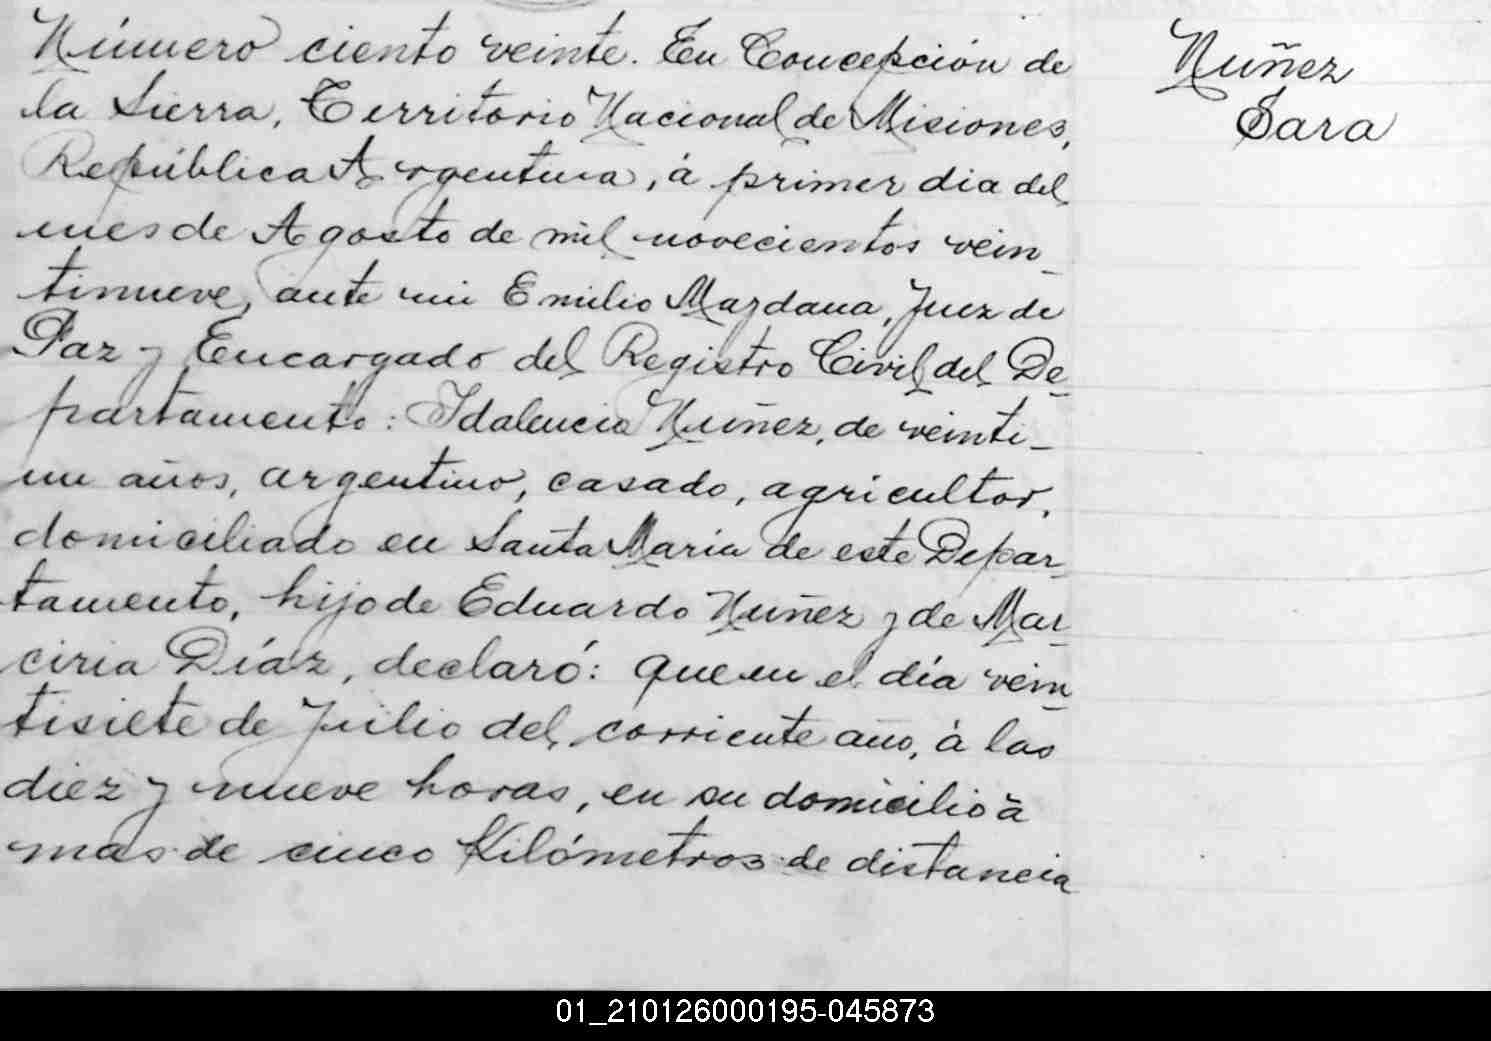 Número ciento veinte. En Concepción de
la Sierra, Territorio Nacional de Misiones,
República Argentina, á primer dia del
mes de Agosto de mil novecientos vein_
tinueve, ante mi Emilio Mazdana, Juez de
Paz y Encargado del Registro Civil del De_
partamento: Idalencio Nuñez, de veinti_
un años, argentino, casado, agricultor,
domiciliado en Santa Maria de este Depar_
tamento, hijo de Eduardo Nuñez y de Mar_
ciria Díaz, declaró: Que en el día vein_
tisiete de Julio del corriente año, á las
diez y nueve horas, en su domicilio á
mas de cinco Kilómetros de distancia
Nuñez
Sara
01_210126000195-045873